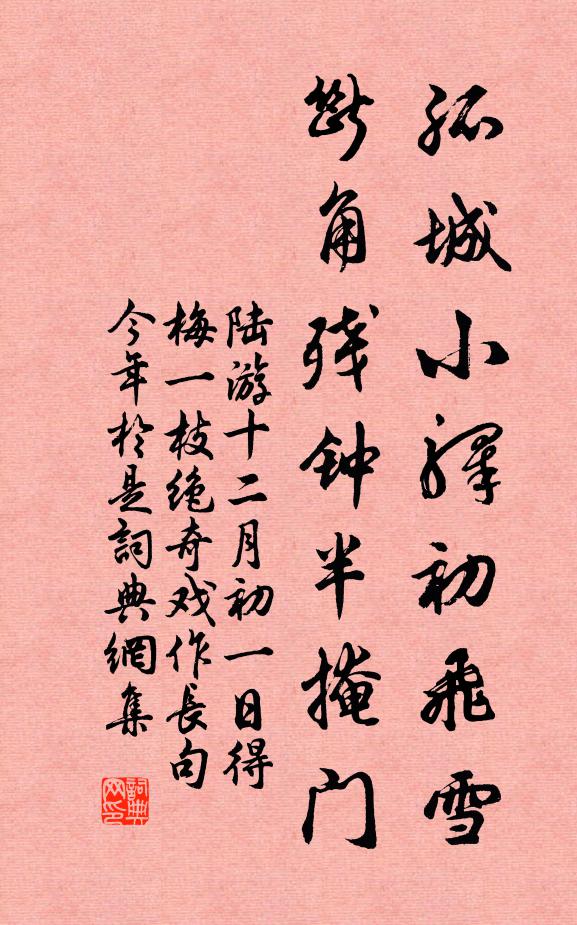 孤城小驿初飞雪
断角残钟半掩门
陆游十二月初一日得
梅一枝绝奇戏作长句
今年於是詞典網集
詞典网印